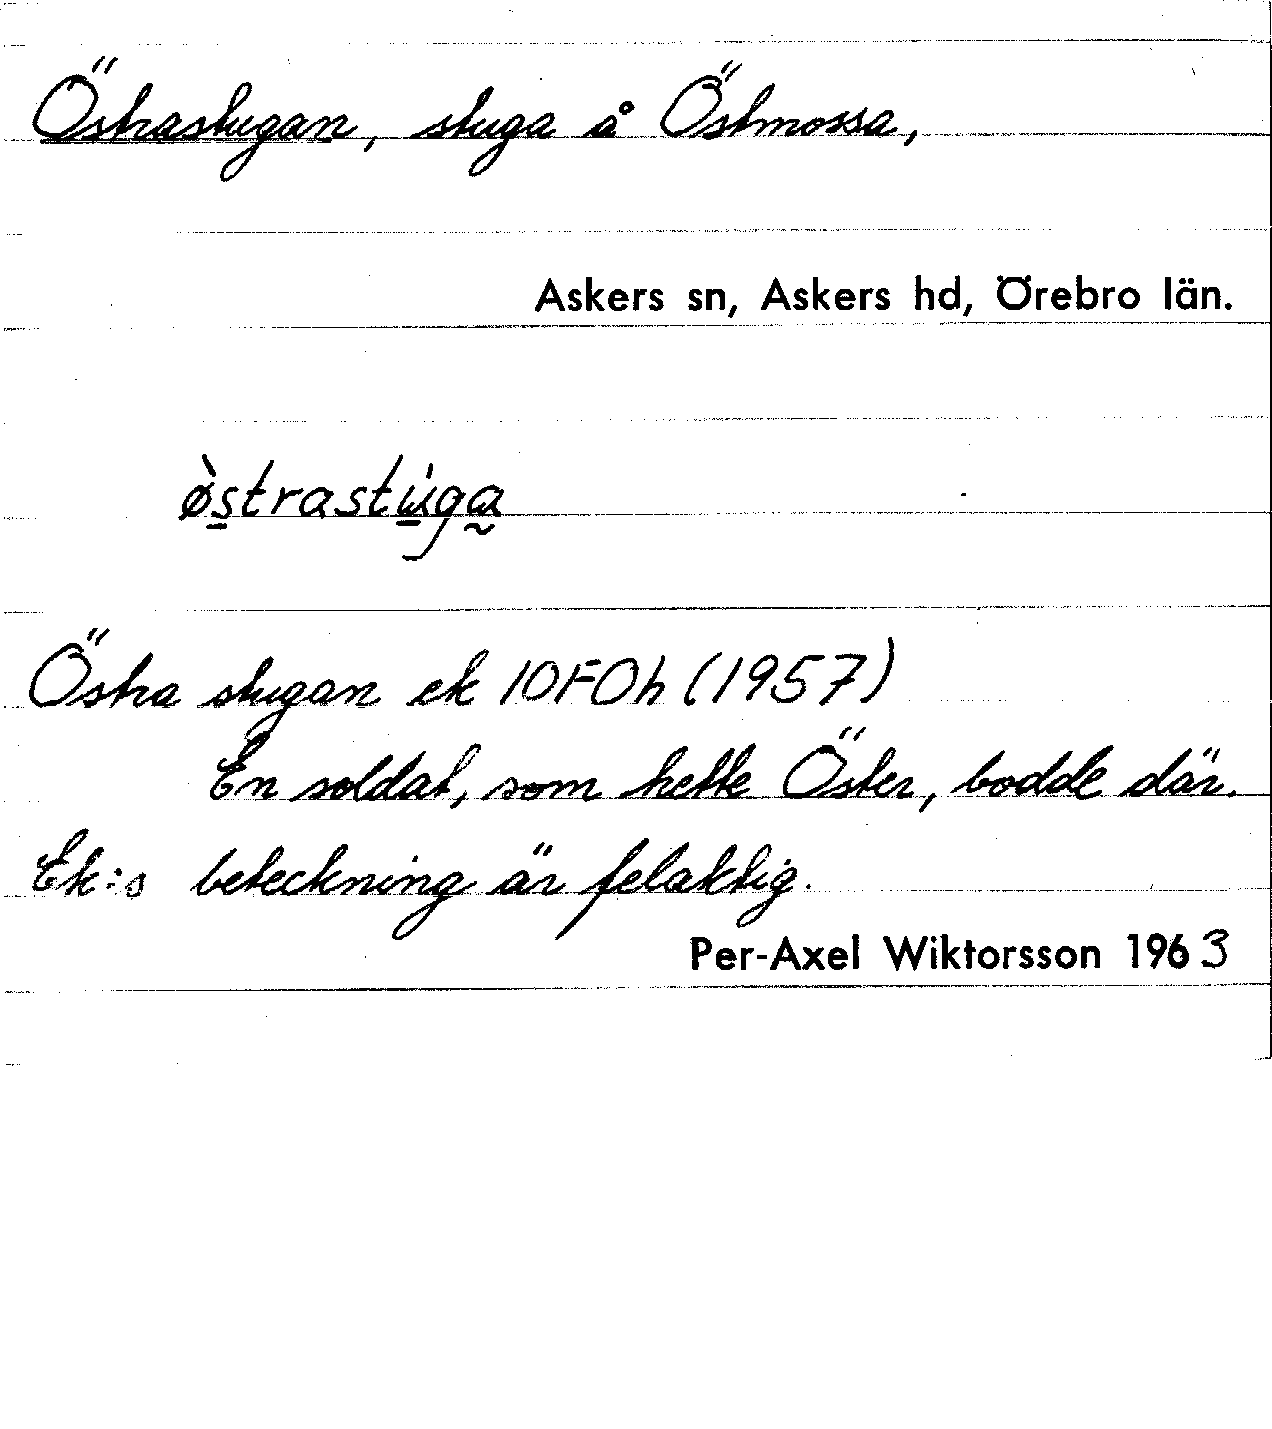 Östrastugan, stuga å Östmossa,
Askers sn, Askers hd, Örebro län.
ø̀strastu̇ga
Östra stugan ek 10F0h (1957)
En soldat, som hette Öster, bodde där.
Ek:s beteckning är felaktig.
Per-Axel Wiktorsson 1963